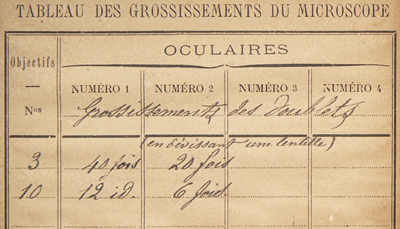 TABLEAU DES GROSSISSEMENTS DU MICROSCOPE
Objectifs
—
Nos
OCULAIRES
NUMÉRO 1 NUMÉRO 2 NUMÉRO 3 NUMÉRO 4
Grossissements des Doublets
(en dévissant une lentille)
3 40 fois 20 fois
10 12 id. 6 foid.